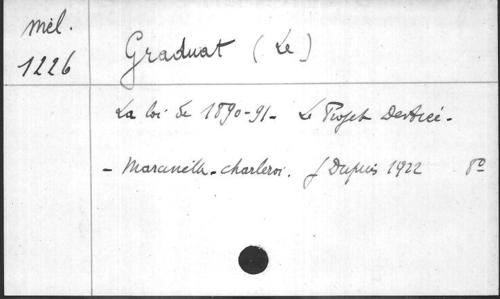 mél.
1226
Graduat (Le)
La loi de 1890-91 - Le Projet Destrée -
- Marcinelle - Charleroi. J Dupuis 1922 8º